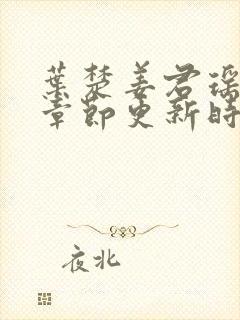 葉楚姜君瑶
章節更新時
夜北